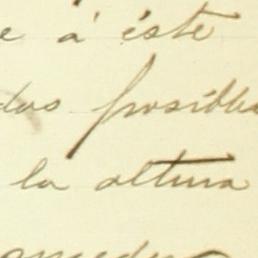 e á éste
dos posibles
la altura